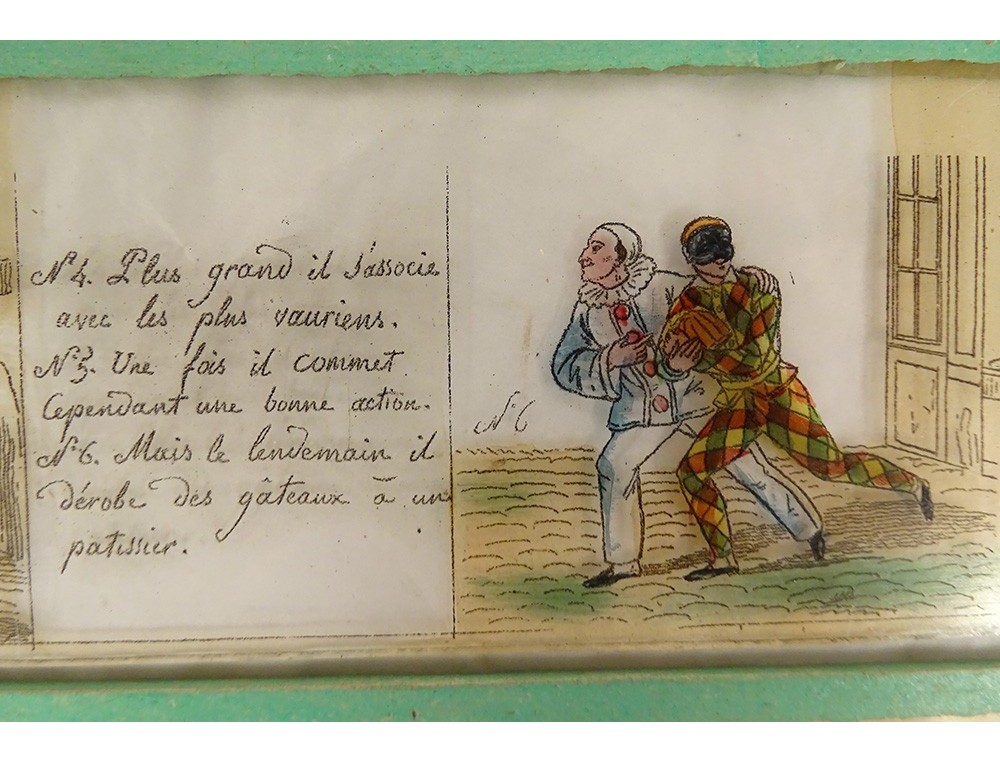 N° 4. Plus grand il s'associe
avec les plus vauriens.
N° 5. Une fois il commet
Cependant une bonne action.
N° 6. Mais le lendemain il
dérobe des gâteaux à un
patissier.
N° 6